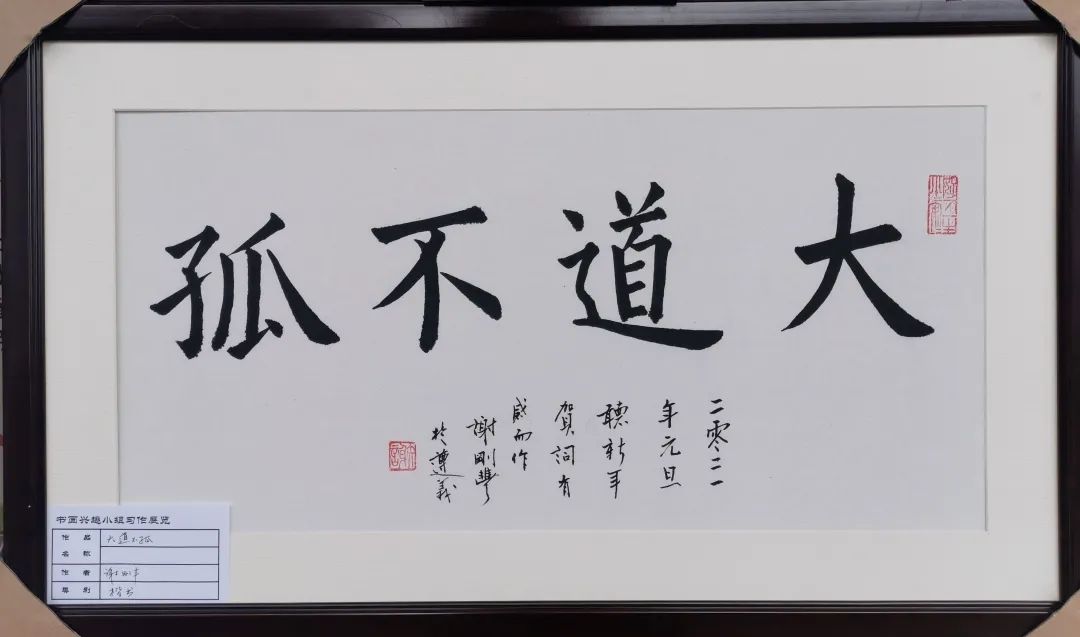 大道不孤
二零二一
年元旦
聽新年
賀詞有
感而作
謝剛豐
於遵義
书画兴趣小组习作展览
作品名称 大道不孤
作者 谢刚丰
类别 楷书